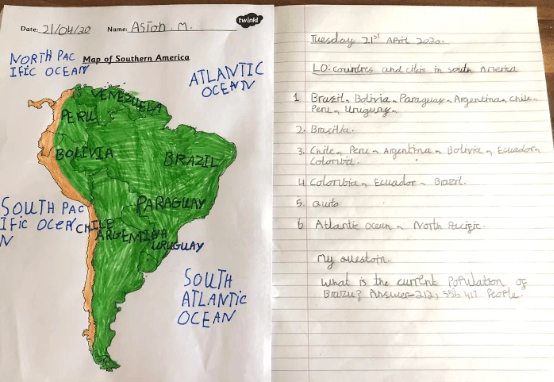 Date: 21/04/20 Name: Aston. M.
twinkl
Map of Southern America
NORTH PAC
IFIC OCEAN
ATLANTIC
OCEAN
VENEZUELA
PERU
BOLIVIA
BRAZIL
PARAGUAY
SOUTH PAC
IFIC OCEAN
CHILE
ARGENTINA
URUGUAY
SOUTH
ATLANTIC
OCEAN
Tuesday 21st April 2020.
LO: countries and cities in south America
1 Brazil, Bolivia, Paraguay, Argentina, Chile,
Peru, Uruguay.
2. Brasilia.
3. Chile, Peru, Argentina, Bolivia, Ecuador,
Colombia.
4 Colombia, Ecuador, Brazil.
5. Quito
6. Atlantic Ocean, North Pacific.
My question.
What is the current Population of
Brazil? Answer= People.